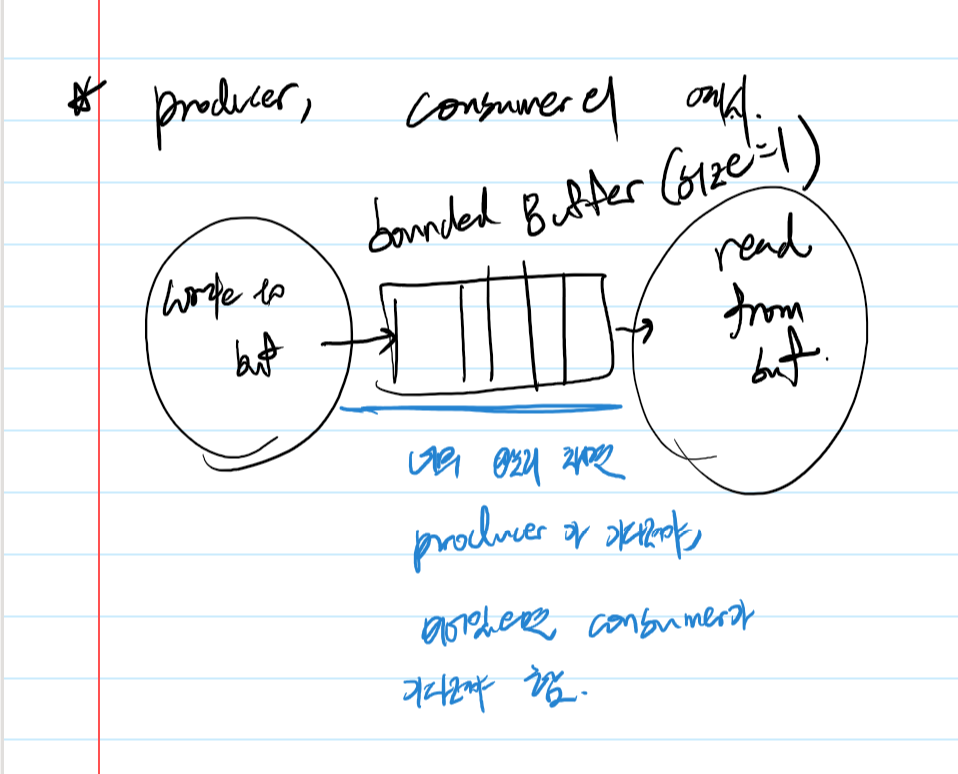 ☆ producer, consumer의 예시.
bounded Buffer (size=1)
write to
buf
read
from
buf.
producer가 기다려야,
비어있으면 consumer가
기다려야 함.